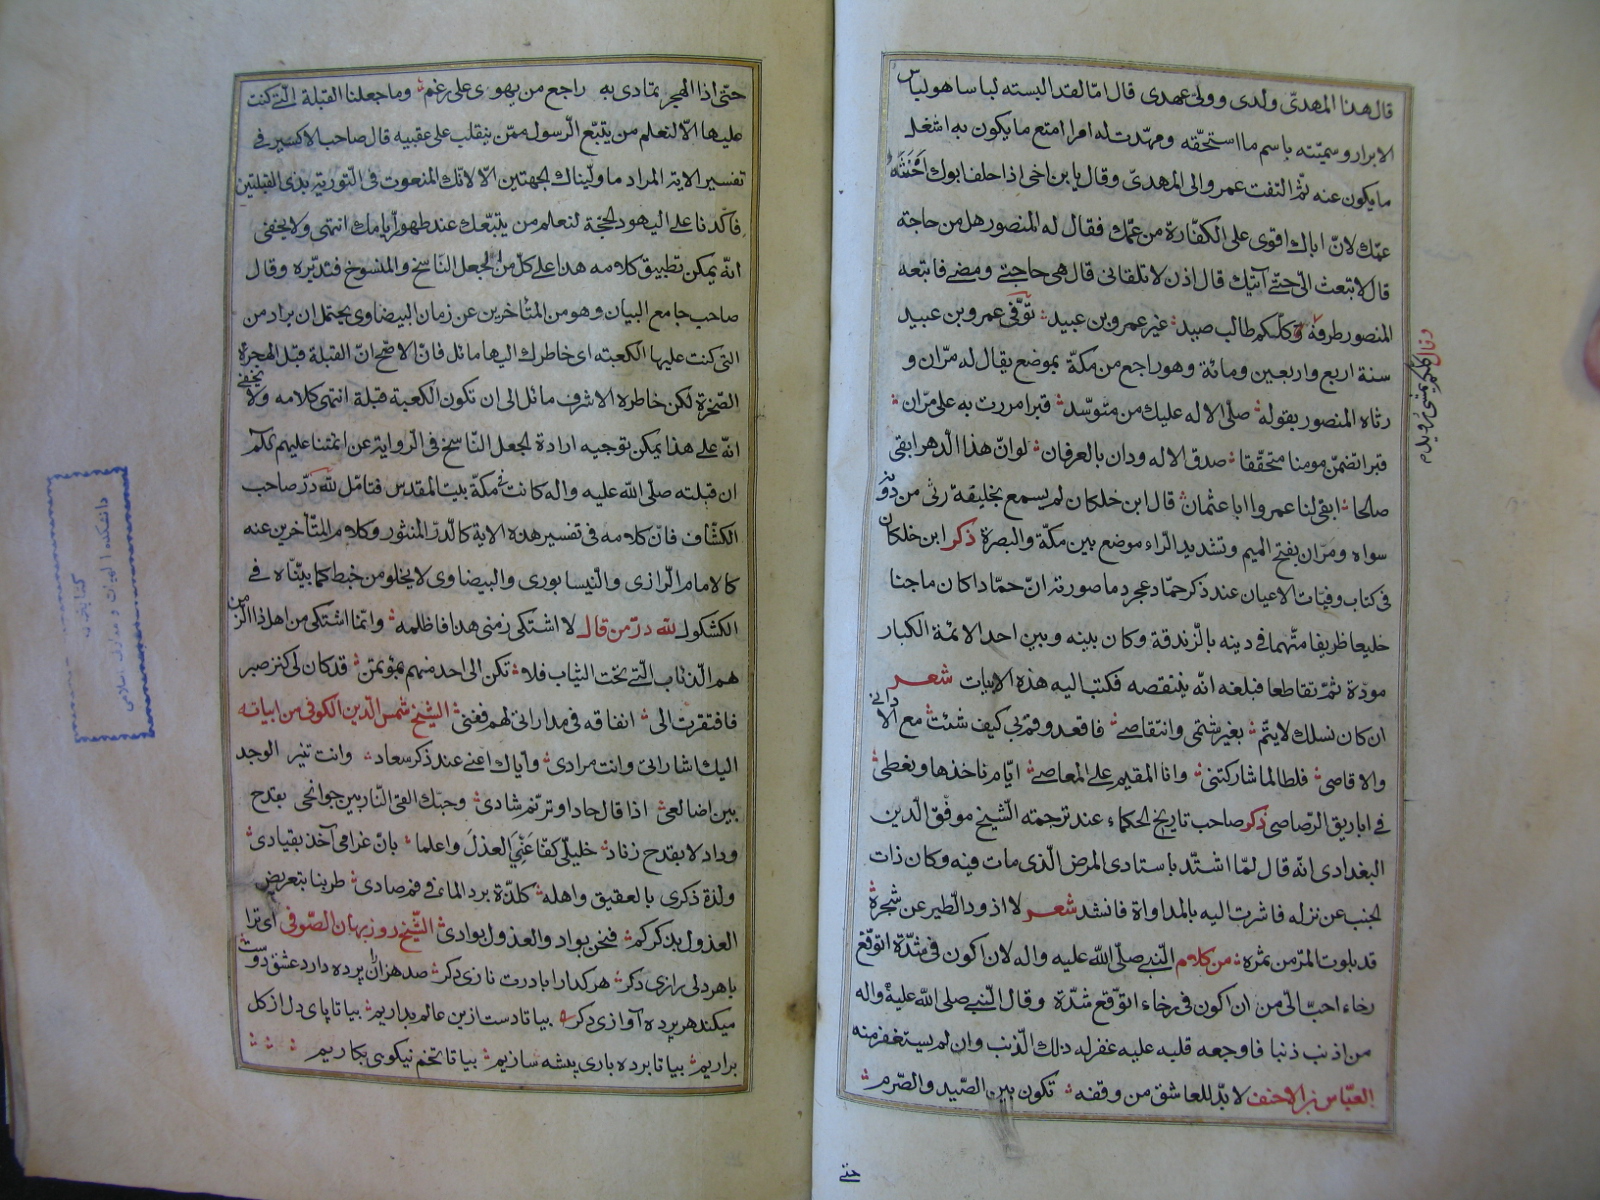 قال هذا المهدىّ ولدى وولىّ عهدى قال امّا لقد البسته لباسا هو لباس
الابرار وسميّته باسم ما استحقّه ومهّدت له امرا امتع ما يكون به اشغل
ما يكون عنه ثمّ التفت عمرو الى المهدىّ وقال يابن اخى اذا حلف ابوك احنثه
عمّك لانّ اباك اقوى على الكفّارة من عمّك فقال له المنصور هل من حاجة
قال لا تبعث الىّ حتّى آتيك قال اذن لا تلقانى قال هى حاجتى ومضى فاتبعه
المنصور طرفه كلّكم طالب صيد غير عمرو بن عبيد توفّى عمرو بن عبيد
سنة اربع واربعين ومائة وهو راجع من مكّة بموضع يقال له مرّان و
رثاه المنصور بقوله صلّى الاله عليك من متوسّد قبرا مررت به على مرّان
قبرا تضمّن مومنا متحقّقا صدق الاله ودان بالعرفان لو انّ هذا الدهر ابقى
صالحا ابقى لنا عمروا ابا عثمان قال ابن خلكان لم يسمع بخليفة رثى من دونه
سواه ومرّان بفتح الميم وتشديد الرّاء موضع بين مكّة والبصرة ذكر ابن خلكان
فى كتاب وفيات الاعيان عند ذكر حمّاد عجرد ما صورته انّ حمّادا كان ماجنا
خليعا ظريفا متّهما فى دينه بالزّندقة وكان بينه وبين احد الائمة الكبار
مودّة ثمّ تقاطعا فبلغه انّه ينتقصه فكتب اليه هذه الابيات شعر
ان كان نسكك لا يتمّ بغير شتمى وانتقاصى فاقعد وقم بى كيف شئت مع الادانى
والاقاصى فلطالما شاركتنى وانا المقيم على المعاصى ايّام ناخذها ونعطى
فى اباريق الرّصاص ذكر صاحب تاريخ الحكماء عند ترجمته الشّيخ موفّق الدّين
البغدادى انّه قال لمّا اشتدّ باستادى المرض الّذى مات فيه وكان ذات
الجنب عن نزله فاشرت اليه بالمداواة فانشد شعر لا اذود الطّير عن شجرة
قد بلوت المرّ من ثمره من كلام النّبى صلّى الله عليه واله لان اكون فى شدّة اتوقّع
رخاء احبّ الىّ من ان اكون فى رخاء اتوقّع شدّة وقال النّبى صلى الله عليه واله
من اذنب ذنبا فاوجعه قلبه عليه غفر له ذلك الذّنب وان لم يستغفر منه
العبّاس بن الاحنف لا بدّ للعاشق من وقفه تكون بين الصّيد والصّرم
حتى
وقال كلكم يمشى رويد
حتى اذا الهجر تمادى به راجع من يهوى على رغم وما جعلنا القبلة الّتى كنت
عليها الّا لنعلم من يتّبع الرّسول ممّن ينقلب على عقبيه قال صاحب الاكسير فى
تفسير الاية المراد ما ولّيناك لجهتين الّا لانّك المنعوت فى التّورية بذى القبلتين
فاكّدنا على اليهود الحجّة لنعلم من يتّبعك عند ظهور ايامك انتهى ولا يخفى
انّه يمكن تطبيق كلامه هذا على كلّ من الجعل النّاسخ والمنسوخ فتدبّره وقال
صاحب جامع البيان وهو من المتأخرين عن زمان البيضاوى يحتمل ان يراد من
التى كنت عليها الكعبة اى خاطرك اليها مائل فانّ الاصّح انّ القبلة قبل الهجرة
الصّخرة لكن خاطره الاشرف مائل الى ان تكون الكعبة قبلة انتهى كلامه ولا يخفى
انّه على هذا يمكن توجيه ارادة الجعل النّاسخ فى الرّواية عن ائمتنا عليهم السلام
ان قبلته صلّى الله عليه واله كانت فى مكّة بيت المقدس فتامّل لله درّ صاحب
الكشّاف فانّ كلامه فى تفسير هذه الاية كالدرّ المنثور وكلام المتأخرين عنه
كالامام الرّازى والنّيسابورى والبيضاوى لا يخلو من خبط كما بيّناه فى
الكشكول لله درّ من قال لا اشتكى زمنى هذا فاظلمه وانّما اشتكى من اهل ذا الزّمن
هم الذّئاب الّتى تحت الثياب فلا تكن الى احد منهم بمؤتمن قد كان لى كنز صبر
فافتقرت الى انفاقه فى مداراتى لهم ففنى الشّيخ شمس الدّين الكوفى من ابياته
اليك اشاراتى وانت مرادى وايّاك اعنى عند ذكر سعاد وانت تثير الوجد
بين اضالعى اذا قال حاد او ترنّم شادى وحبّك القى النّار بين جوانحى بقدح
وداد لا بقدح زناد خليلىّ كفّا عنّى العذل واعلما بانّ غرامى آخذ بقيادى
ولذة ذكرى بالعقيق واهله كلذّة برد الماء فى فم صادى طربنا بتعريض
العذول بذكركم فنحن بواد والعذول بوادى الشّيخ روزبهان الصّوفى اى ترا
با هر دلى رازى دگر هر گدا را با درت نازى دگر صد هزاران پرده دارد عشق دوست
ميكند هر پرده آوازى دگر بيا تا دست ازين عالم بداريم بيا تا پاى دل از گل
براريم بيا تا بردبارى پيشه سازيم بيا تا تخم نيكوئى بكاريم
دانشكده الهيات و معارف اسلامى
كتابخانه